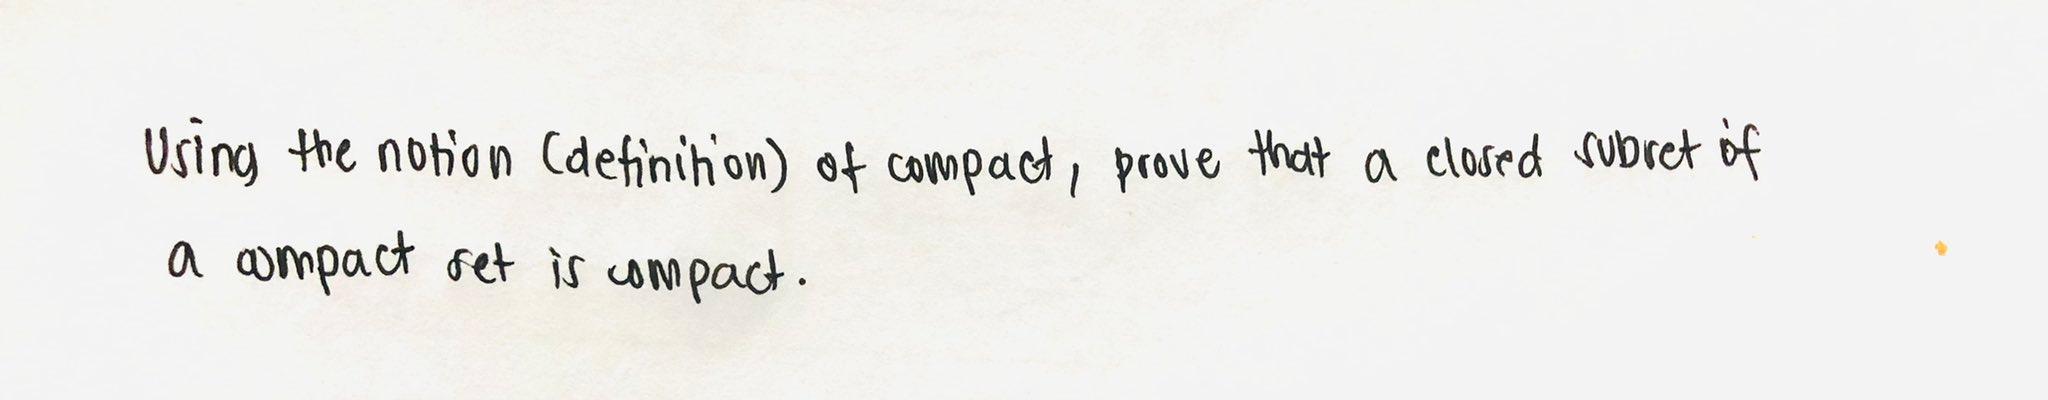 Using the notion (definition) of compact, prove that a closed subset of
a compact set is compact.